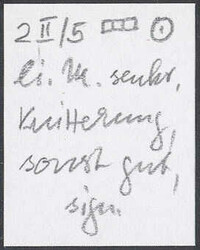 2 II/5 ⊙
li. U. senkr.
Knitterung,
sonst gut,
sign.